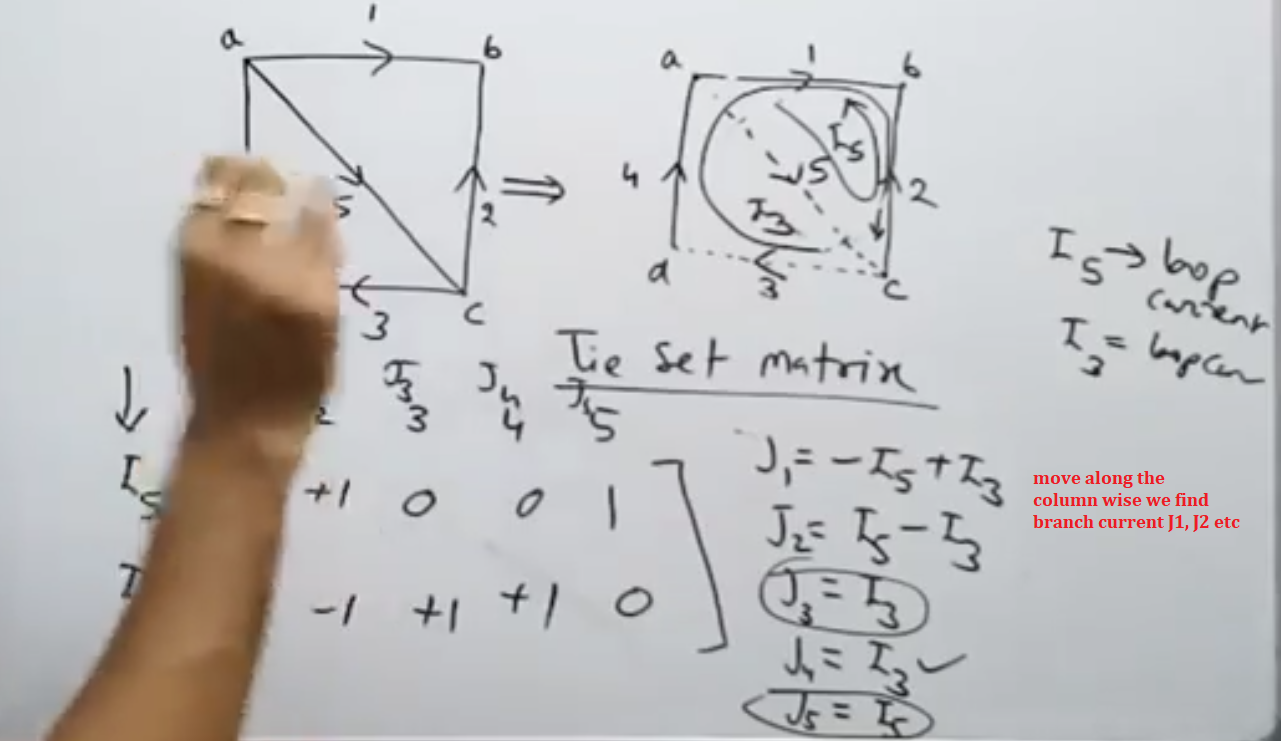 1
a
b
5
2
3
c
⇒
a
1
b
4
5
I5
2
I3
d
3
c
I5 → loop
current
I3 = loop cur
Tie set matrix
J3 J4 J5
2 3 4 5
I5 +1 0 0 1
I -1 +1 +1 0
J1 = -I5 + I3
J2 = I5 - I3
J3 = I3
J4 = I3 ✓
J5 = I5
move along the
column wise we find
branch current J1, J2 etc